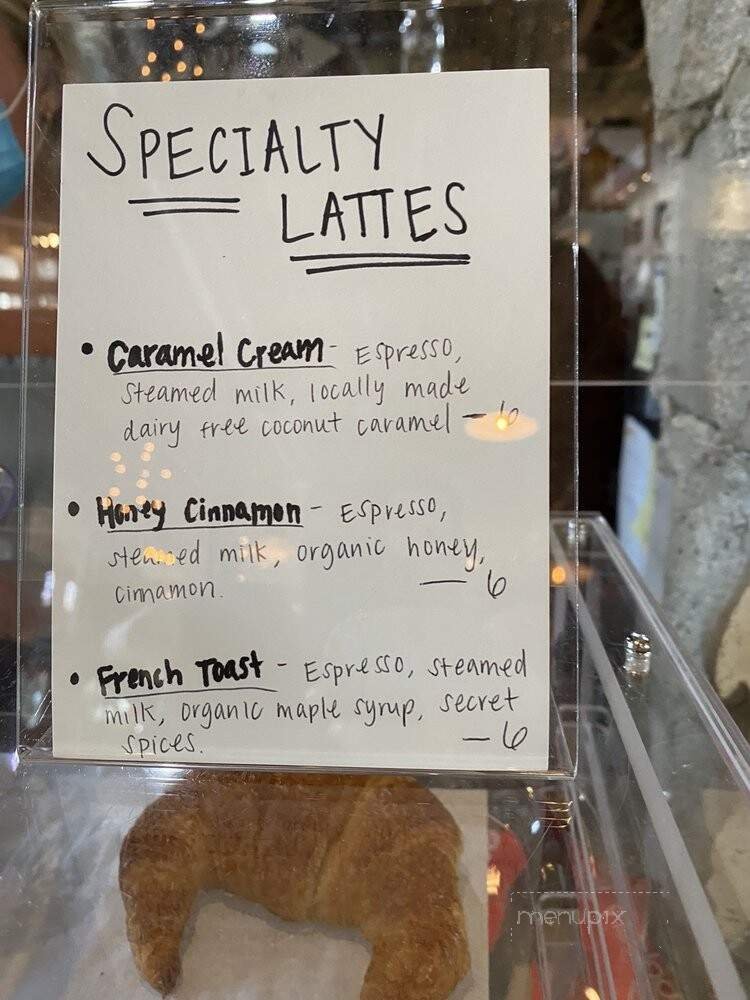 SPECIALTY
LATTES
• Caramel Cream - Espresso,
steamed milk, locally made
dairy free coconut caramel — 6
• Honey Cinnamon - Espresso,
steamed milk, organic honey,
cinnamon. — 6
• French Toast - Espresso, steamed
milk, organic maple syrup, secret
spices. — 6
menupix